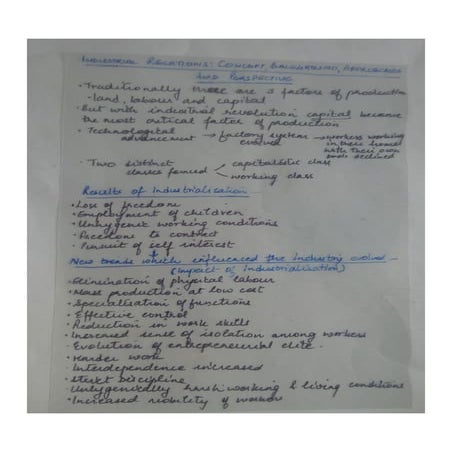 INDUSTRIAL RELATIONS: CONCEPT, BACKGROUND, APPROACHES
AND PERSPECTIVE
• Traditionally there are 3 factors of production
- land, labour and capital
• But with industrial revolution capital became
the most critical factor of production
• Technological advancement → factory system evolved → workers working in their homes with their own tools declined
• Two distinct classes formed < capitalistic class
working class
Results of Industrialisation
• Loss of freedom
• Employment of children
• Unhygenic working conditions
• Freedom to contract
• Pursuit of self interest
New trends which influenced the industry evolved -
(Impact of Industrialisation)
• Elimination of physical labour
• Mass production at low cost
• Specialisation of functions
• Effective control
• Reduction in work skills
• Increased sense of isolation among workers
• Evolution of entrepreneurial elite.
• Harder work
• Interdependence increased
• Strict Discipline
• Unhygenically harsh working & living conditions
• Increased mobility of workers